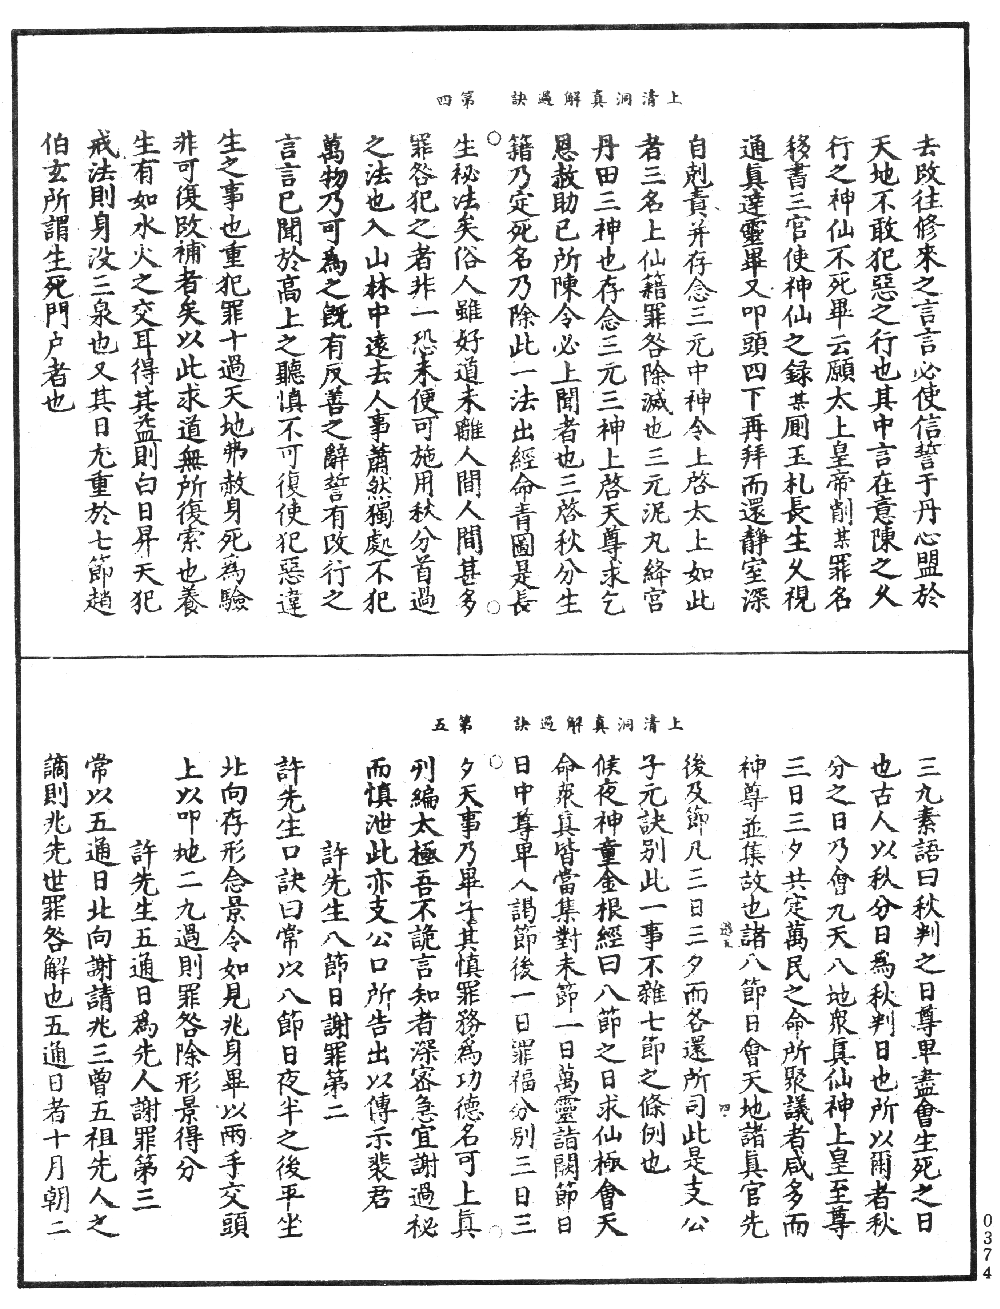 上清洞真解過訣　第四
去改往修來之言言必使信誓于丹心盟於
天地不敢犯惡之行也其中言在意陳之夂
行之神仙不死畢云願太上皇帝削某罪名
移書三官使神仙之錄某厠玉札長生夂視
通真達靈畢又叩頭四下再拜而還静室深
自剋責并存念三元中神令上啓太上如此
者三名上仙籍罪咎除滅也三元泥丸絳宮
丹田三神也存念三元三神上啓天尊求乞
恩赦助已所陳令必上聞者也三啓秋分生
籍乃定死名乃除此一法出經命青圖是長
生祕法矣俗人雖好道未離人間人間甚多
罪咎犯之者非一恐未便可施用秋分首過
之法也入山林中遠去人事蕭然獨處不犯
萬物乃可為之旣有反善之辭誓有改行之
言言已聞於高上之聽慎不可復使犯惡違
生之事也重犯罪十過天地弗赦身死為驗
非可復改補者矣以此求道無所復索也養
生有如水火之交耳得其益則白日昇天犯
戒法則身没三泉也又其日尢重於七節趙
伯玄所謂生死門户者也
上清洞真解過訣　第五
三九素語曰秋判之日尊卑盡會生死之日
也古人以秋分日爲秋判日也所以爾者秋
分之日乃會九天八地衆真仙神上皇至尊
三日三夕共定萬民之命所聚議者咸多而
神尊並集故也諸八節日會天地諸真官先
後及節凡三日三夕而各還所司此是支公
子元訣别此一事不雜七節之條例也
候夜神童金根經曰八節之日求仙極會天
命衆真皆當集對未節一日萬靈詣闕節日
日中尊卑入謁節後一日罪福分别三日三
夕天事乃畢子其慎罪務爲功德名可上真
刋編太極吾不詭言知者深密急宜謝過祕
而慎泄此亦支公口所告出以傳示裴君
許先生八節日謝罪第二
許先生口訣曰常以八節日夜半之後平坐
北向存形念景令如見兆身畢以兩手交頭
上以叩地二九過則罪咎除形景得分
許先生五通日爲先人謝罪第三
常以五通日北向謝請兆三曾五祖先人之
謫則兆先世罪咎解也五通日者十月朝二
0374